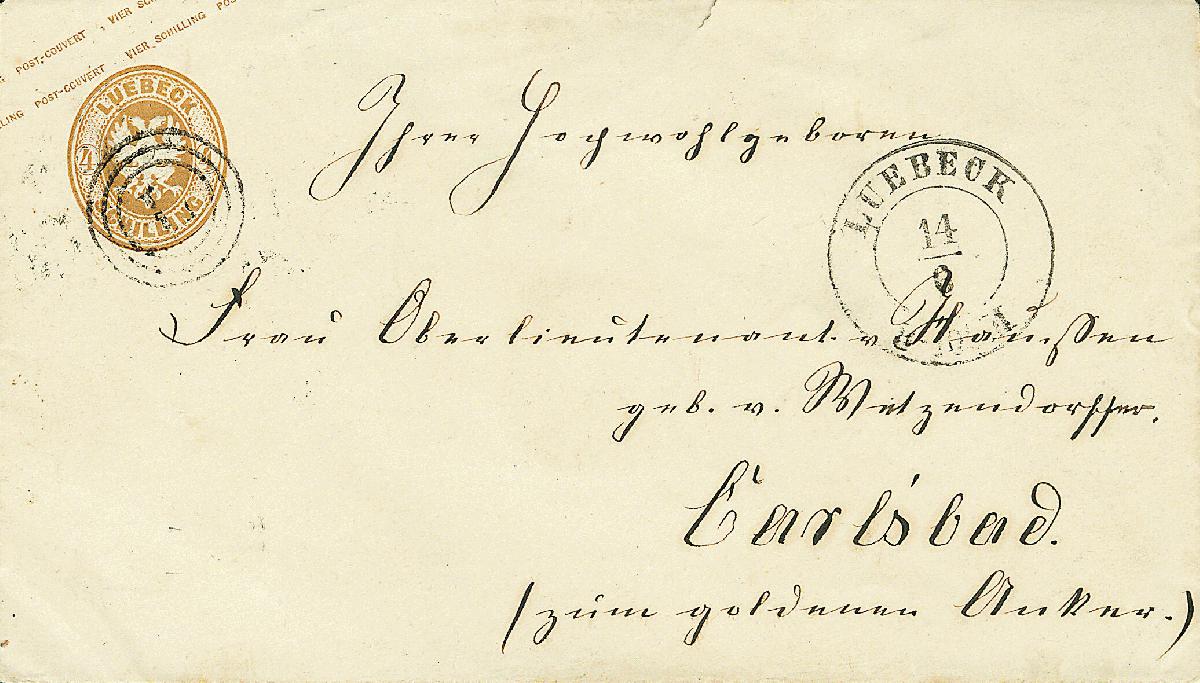 POST-COUVERT VIER SCHILLING
SCHILLING POST-COUVERT VIER SCHILLING POST
LUEBECK
4
SCHILLING
Ihrer Hochwohlgeboren
LUEBECK
14
Frau Oberlieutenant v
geb. v. Witzendorffer.
Carlsbad.
(zum goldenen Anker.)